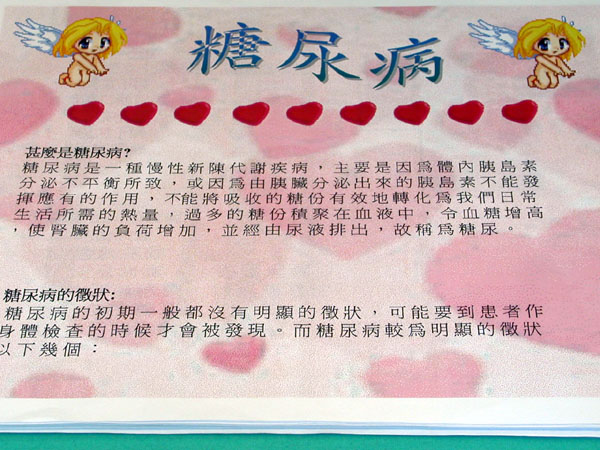 糖尿病
甚麼是糖尿病?
糖尿病是一種慢性新陳代謝疾病，主要是因為體內胰島素
分泌不平衡所致，或因為由胰臟分泌出來的胰島素不能發
揮應有的作用，不能將吸收的糖份有效地轉化為我們日常
生活所需的熱量，過多的糖份積聚在血液中，令血糖增高
，使腎臟的負荷增加，並經由尿液排出，故稱為糖尿。
糖尿病的徵狀:
糖尿病的初期一般都沒有明顯的徵狀，可能要到患者作
身體檢查的時候才會被發現。而糖尿病較為明顯的徵狀
以下幾個：